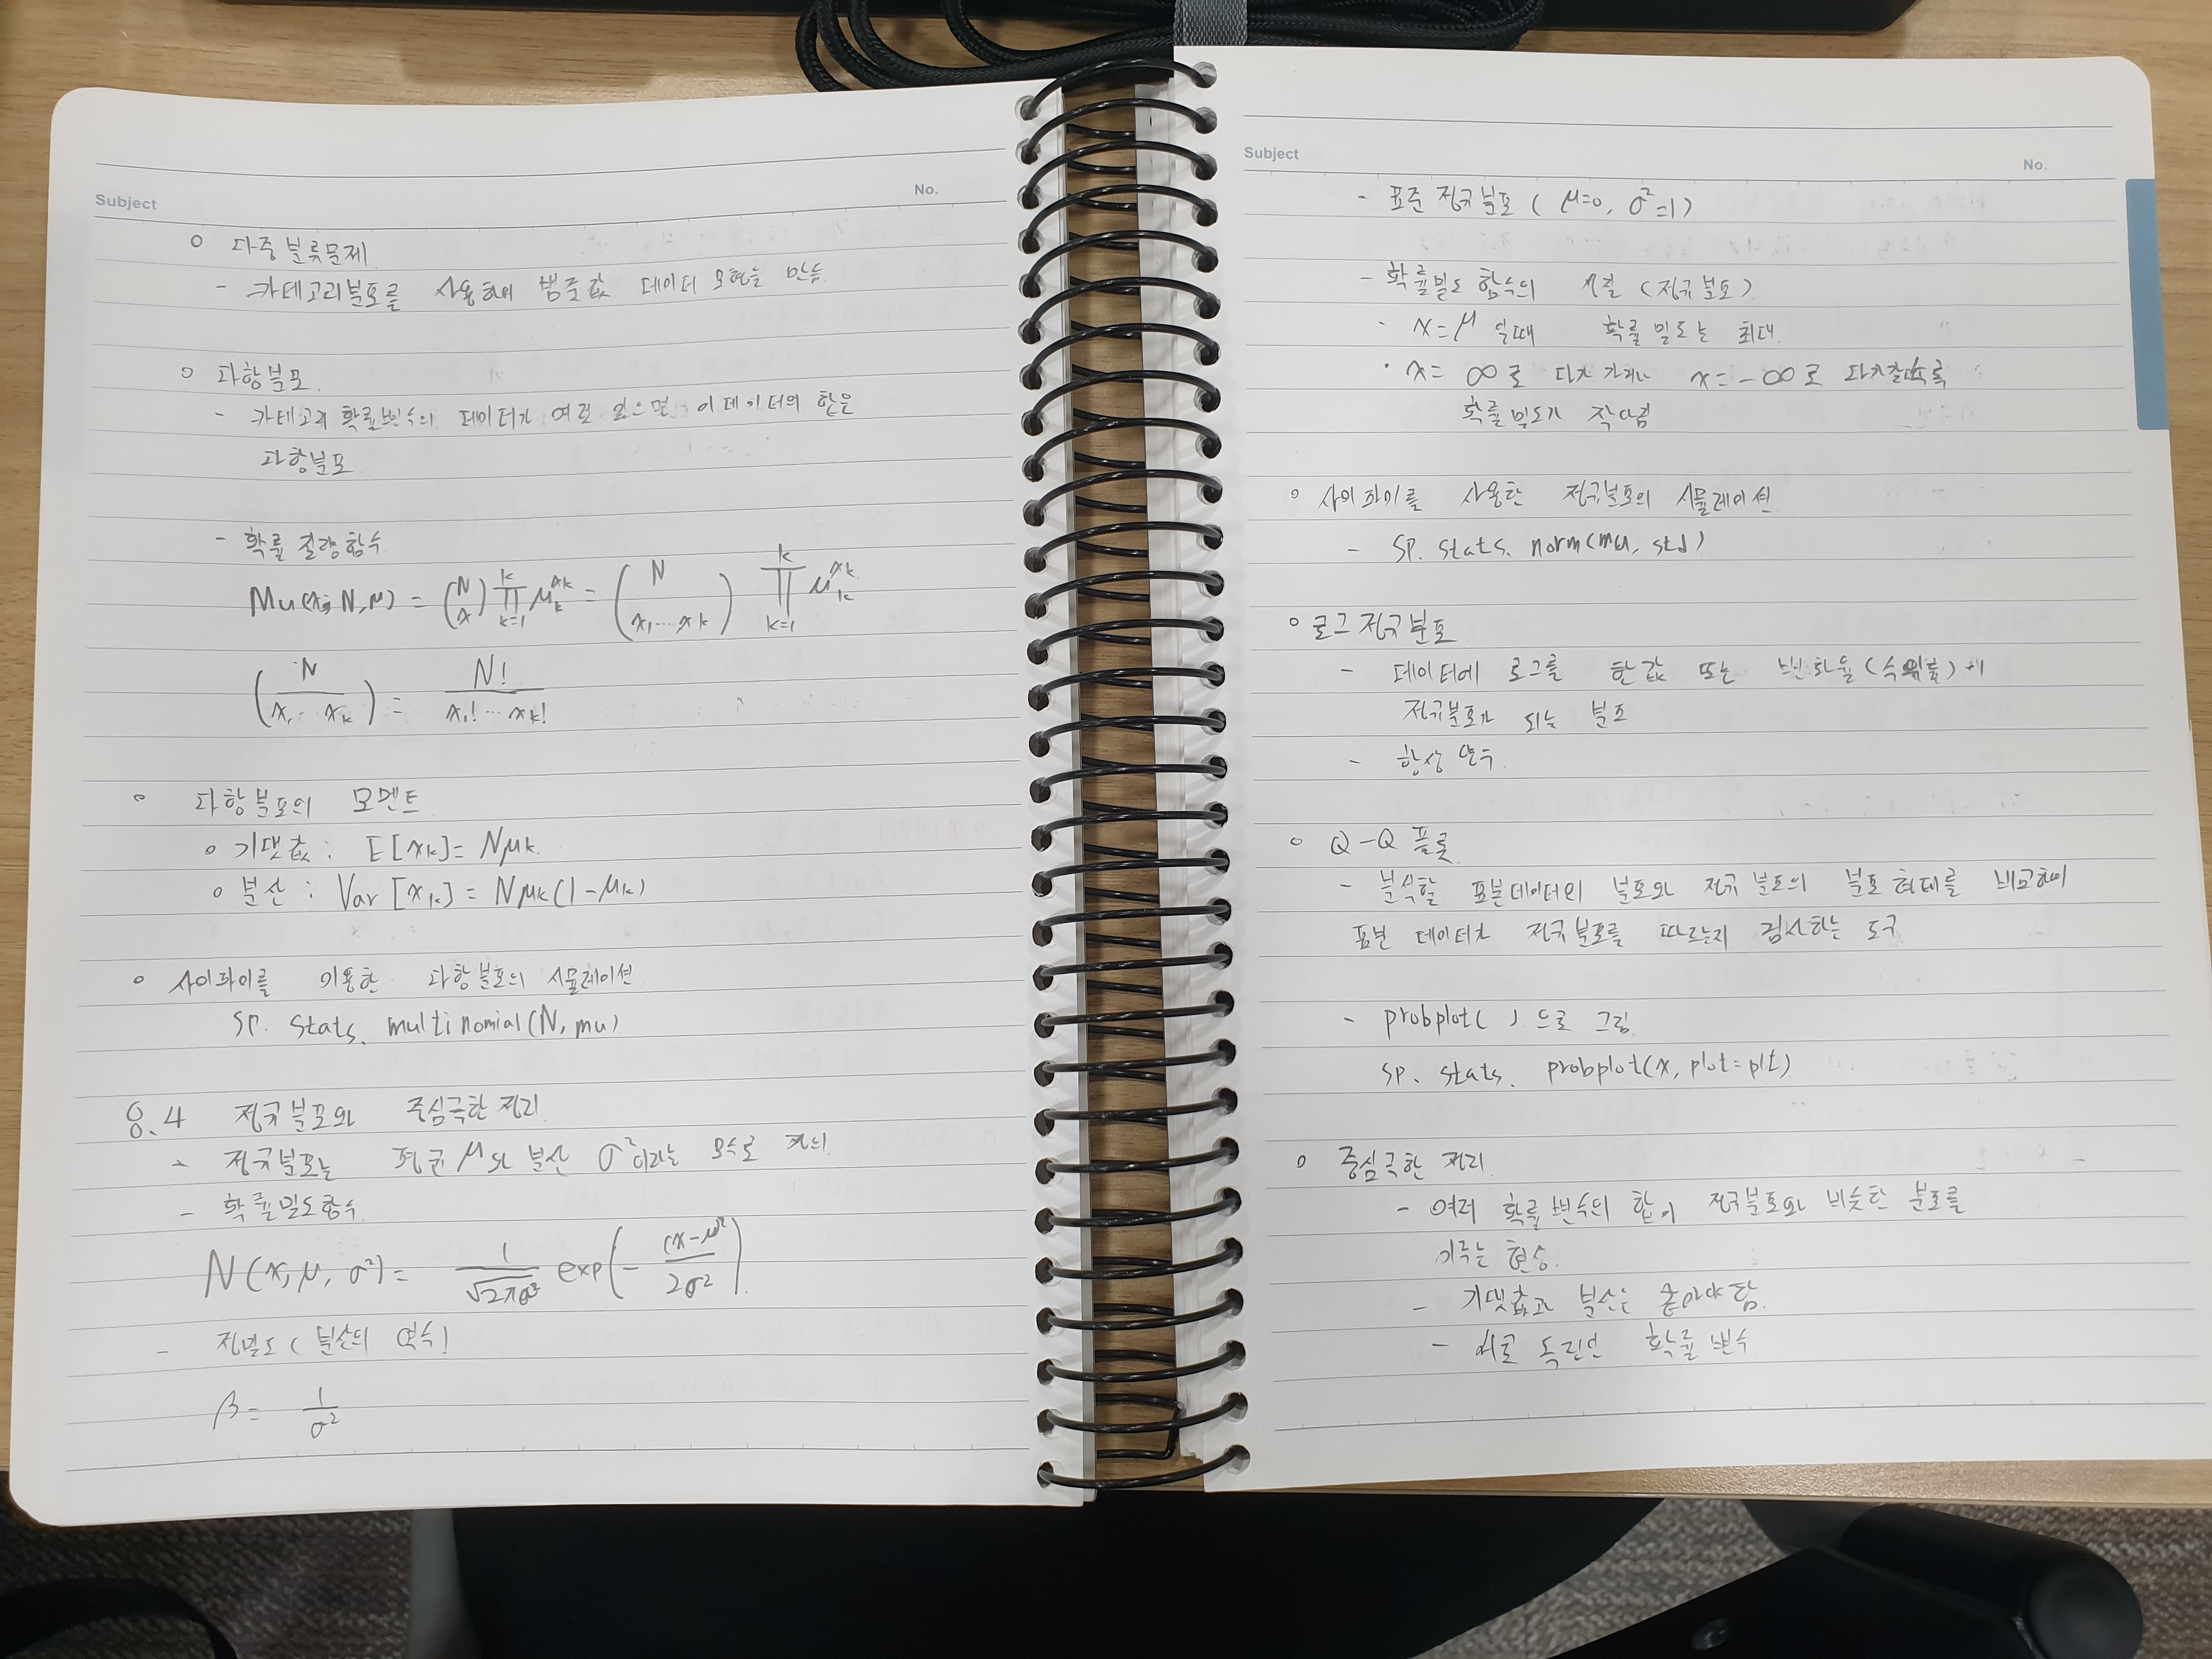 Subject
No.
○ 다중분류문제
- 카테고리분포를 사용하여 범주값 데이터 모형을 만듬
○ 다항분포.
- 카테고리 확률변수의 데이터가 여러 있으면 이 데이터의 합은
다항분포
- 확률 질량함수
Mu(x; N, μ) = (N x) ∏ k=1 K μ_k^{x_k} = (N x_1 ... x_k) ∏ k=1 K μ_k^{x_k}
(N x_1 ... x_k) = N! / x_1! ... x_k!
○ 다항분포의 모멘트
○ 기댓값 : E[x_k] = Nμ_k.
○ 분산 : Var[x_k] = Nμ_k(1-μ_k)
○ 사이파이를 이용한 다항분포의 시뮬레이션
SP. stats. multinomial(N, mu)
8.4 정규분포와 중심극한정리
- 정규분포는 평균 μ와 분산 σ²이라는 모수로 정의
- 확률밀도함수
N(x; μ, σ²) = 1/√2πσ² exp(- (x-μ)²/2σ²).
- 정밀도 (분산의 역수)
β = 1/σ²
Subject
No.
- 표준정규분포 ( μ=0, σ²=1)
- 확률밀도함수의 성질 (정규분포)
· x=μ 일때 확률밀도는 최대.
· x= ∞로 다가가거나 x=-∞로 다가갈수록
확률밀도가 작아짐
○ 사이파이를 사용한 정규분포의 시뮬레이션
- SP. stats. norm(mu, std)
○ 로그정규분포
- 데이터에 로그를 한값 또는 변화율(수익률)이
정규분포가 되는 분포
- 항상 양수.
○ Q-Q 플롯
- 분석할 표본데이터의 분포와 정규분포의 분포형태를 비교하여
표본 데이터가 정규분포를 따르는지 검사하는 도구
- probplot( )으로 그림.
SP. stats. probplot(x, plot=plt)
○ 중심극한 정리.
- 여러 확률변수의 합이 정규분포와 비슷한 분포를
이루는 현상.
- 기댓값과 분산은 같아야함.
- 서로 독립인 확률변수